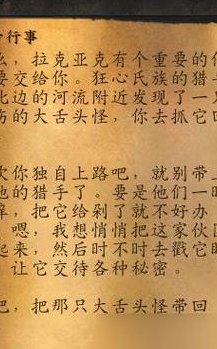 行事
么，拉克亚克有个重要的任
要交给你。狂心氏族的猎
北边的河流附近发现了一只
伤的大舌头怪，你去抓它回
欢你独自上路吧，就别带上
他的猎手了。要是他们一时
草，把它给剁了就不好办
嗯，我想悄悄把这家伙
起来，然后时不时去戳它
让它交待各种秘密。
吧，把那只大舌头怪带回